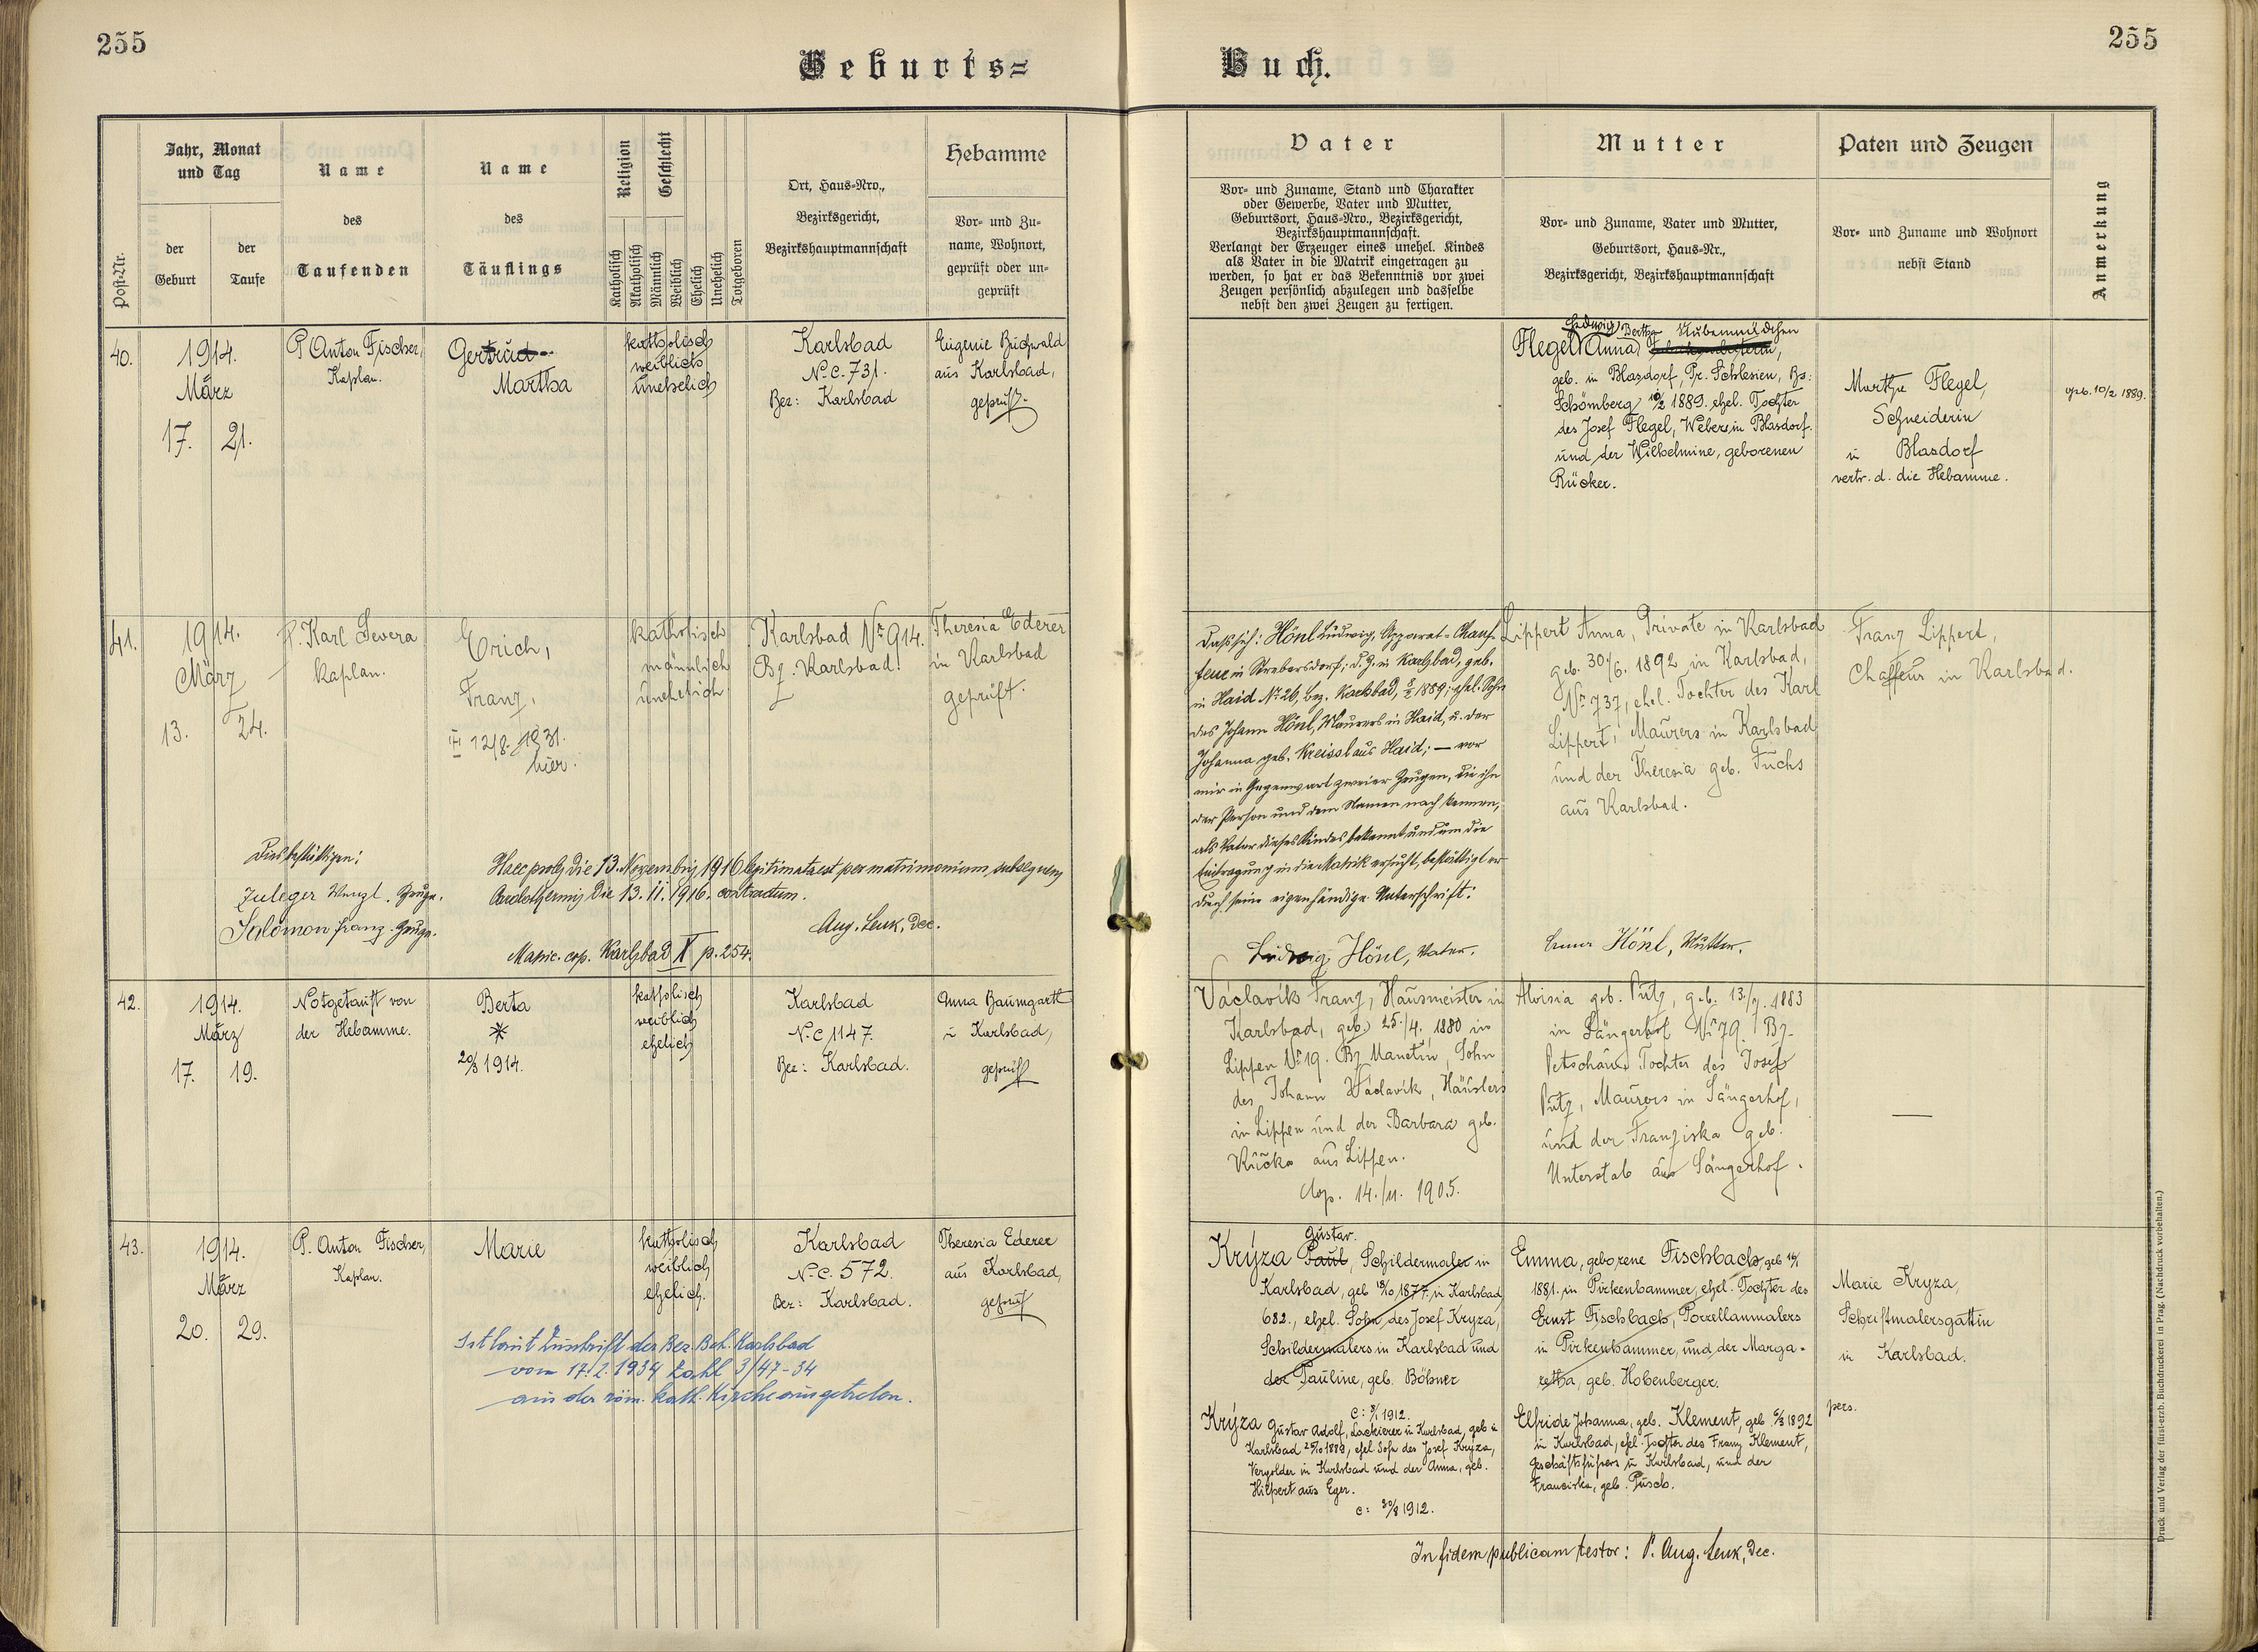 255
Geburts=
Buch.
255
Post-Nr.
Jahr, Monat
und Tag
der
Geburt
der
Taufe
Name
des
Taufenden
Name
des
Täuflings
Religion
Geschlecht
Katholisch
Akatholisch
Männlich
Weiblich
Ehelich
Unehelich
Totgeboren
Ort, Haus-Nro.,
Bezirksgericht,
Bezirkshauptmannschaft
Hebamme
Vor- und Zu-
name, Wohnort,
geprüft oder un-
geprüft
Vater
Vor- und Zuname, Stand und Charakter
oder Gewerbe, Vater und Mutter,
Geburtsort, Haus-Nro., Bezirksgericht,
Bezirkshauptmannschaft.
Verlangt der Erzeuger eines unehel. Kindes
als Vater in die Matrik eingetragen zu
werden, so hat er das Bekenntnis vor zwei
Zeugen persönlich abzulegen und dasselbe
nebst den zwei Zeugen zu fertigen.
Mutter
Vor- und Zuname, Vater und Mutter,
Geburtsort, Haus-Nr.,
Bezirksgericht, Bezirkshauptmannschaft
Paten und Zeugen
Vor- und Zuname und Wohnort
nebst Stand
Anmerkung
40.
1914.
März
17. 21.
P. Anton Fischer,
Kaplan.
Gertrud
Martha
katholisch
weiblich
unehelich
Karlsbad
N.C. 731.
Bez: Karlsbad
Eugenie Buchwald
aus Karlsbad,
geprüft.
Hedwig Bertha
Flegel Anna
geb. in Blasdorf, Pr. Schlesien, Bz:
Schömberg 10/2 1889. ehel. Tochter
des Josef Flegel, Webers in Blasdorf.
und der Wilhelmine, geborenen
Rücker.
Martha Flegel,
Schneiderin
in Blasdorf
vertr. d. die Hebamme.
geb. 10/2 1889.
41.
1914.
März
13. 24.
P. Karl Severa
Kaplan.
Erich,
Franz,
12/8. 1931.
hier.
katholisch
männlich
unehelich
Karlsbad Nr 914.
Bz. Karlsbad.
Theresia Ederer
in Karlsbad
geprüft.
Dass sich: Hönl Ludwig, Apparat-Chauf-
feur in Strebersdorf, d. Z. in Karlsbad, geb.
in Haid Nr 26, Bez. Karlsbad, 1889; ehel. Sohn
des Johann Hönl, Maurers in Haid, u. der
Johanna geb. Kreissl aus Haid; — vor
mir in Gegenwart zweier Zeugen, die ihn
der Person und dem Namen nach kennen,
als Vater dieses Kindes bekennt und um die
Eintragung in die Matrik ersucht, bestättigt er
durch seine eigenhändige Unterschrift:
Ludwig Hönl, Vater.
Lippert Anna, Private in Karlsbad
geb. 30./6. 1892 in Karlsbad,
Nr 737, ehel. Tochter des Karl
Lippert, Maurers in Karlsbad
und der Theresia geb. Fuchs
aus Karlsbad.
Anna Hönl, Mutter.
Franz Lippert,
Chaffeur in Karlsbad.
Dies bestättigen:
Zuleger Wenzl, Zeuge.
Salomon Franz, Zeuge.
Haec proles die 13. Novembris 1916 legitimata est per matrimonium subsequens
Carolothermis die 13. 11. 1916. contractum.
Aug. Lenk, Dec.
Matric. cop. Karlsbad X p. 254.
42.
1914.
März
17. 19.
Notgetauft von
der Hebamme.
Berta
20/3 1914.
katholisch
weiblich
ehelich
Karlsbad
N.C 1147.
Bez: Karlsbad.
Anna Baumgartl
in Karlsbad,
geprüft
Václavík Franz, Hausmeister in
Karlsbad, geb. 25./4. 1880 in
Lippen Nr 19. Bz Manetin, Sohn
des Johann Václavík, Häuslers
in Lippen und der Barbara geb.
Kučka aus Lippen.
Cop. 14./11. 1905.
Aloisia geb. Putz, geb. 13./7. 1883
in Sängerhof Nr 79. Bz.
Petschau Tochter des Josef
Putz, Maurers in Sängerhof,
und der Franziska geb.
Unterstab aus Sängerhof.
—
43.
1914.
März
20. 29.
P. Anton Fischer,
Kaplan.
Marie
katholisch
weiblich
ehelich.
Karlsbad
N.C. 572.
Bez: Karlsbad.
Theresia Ederer
aus Karlsbad,
geprüft
Ist laut Zuschrift der Bez. Beh. Karlsbad
vom 17. 2. 1934 Zahl 3/47-34
aus der röm. kath. Kirche ausgetreten.
Gustav.
Krýza Paul, Schildermaler in
Karlsbad, geb 18/10 1877. in Karlsbad
682., ehel. Sohn des Josef Kryza,
Schildermalers in Karlsbad und
der Pauline, geb. Böhner
C: 1912.
Krýza Gustav Adolf, Lackierer in Karlsbad, geb in
Karlsbad 25/10 1889, ehel. Sohn des Josef Krýza,
Vergolder in Karlsbad und der Anna, geb.
Hilpert aus Eger.
c: 30/8 1912.
Emma, geborene Fischbach, geb
1881. in Pirkenhammer, ehel. Tochter des
Ernst Fischbach, Porzellanmalers
in Pirkenhammer, und der Marga-
retha, geb. Hobenberger.
Elfride Johanna, geb. Klement, geb. 6/3 1892
in Karlsbad, ehel. Tochter des Franz Klement,
Geschäftsführers in Karlsbad, und der
Franciska, geb. Püsch.
Marie Kryza,
Schriftmalersgattin
in Karlsbad.
pers.
In fidem publicam testor: P. Aug. Lenk, Dec.
Druck und Verlag der fürst-erzb. Buchdruckerei in Prag. (Nachdruck vorbehalten.)